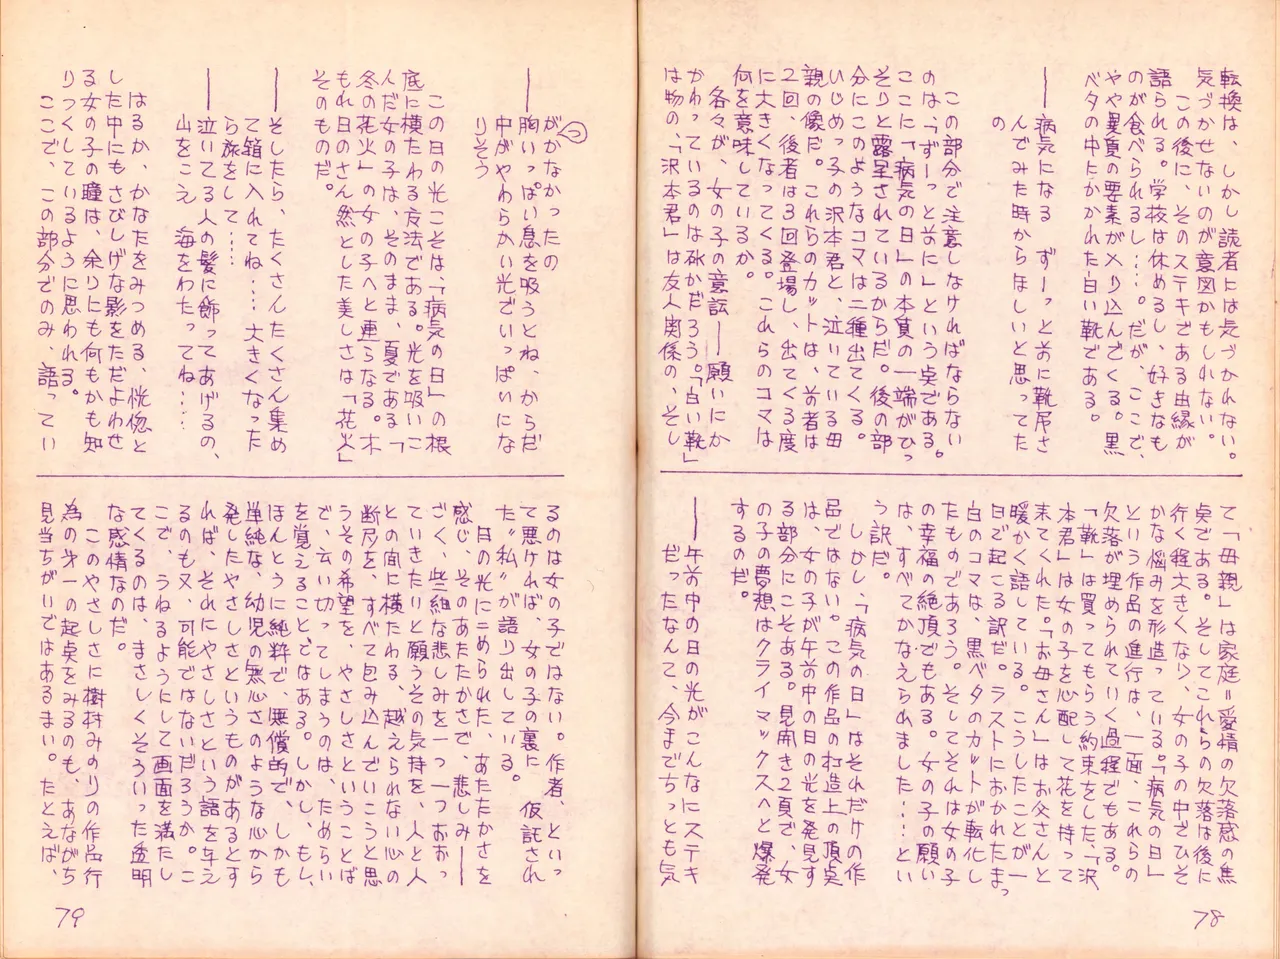 転換は、しかし読者には気づかれない。
気づかせないのが意図かもしれない。
この後に、そのステキである由縁が
語られる。学校は休めるし、好きなも
のが食べられるし……。だが、ここで、
やや異質の要素が入り込んでくる。黒
ベタの中にかかれた白い靴である。
――病気になる ずーっと前に靴屋さ
んでみた時からほしいと思ってた
の
この部分で注意しなければならない
のは、「ずーっと前に」という点である。
ここに「病気の日」の本質の一端がひっ
そりと露呈されているからだ。後の部
分にこのようなコマは二種出てくる。
いじめっ子の沢本君と、泣いている母
親の像だ。これらのカットは、前者は
2回、後者は3回登場し、出てくる度
に大きくなってくる。これらのコマは
何を意味しているか。
各々が、女の子の意識――願いにか
かわっているのは確かだろう。「白い靴」
は物の、「沢本君」は友人関係の、そし
て「母親」は家庭＝愛情の欠落感の焦
点である。そしてこれらの欠落は後に
行く程大きくなり、女の子の中でひそ
かな悩みを形造っている。「病気の日」
という作品の進行は、一面、これらの
欠落が埋められていく過程でもある。
「靴」は買ってもらう約束をした、「沢
本君」は女の子を心配して花を持って
来てくれた。「お母さん」はお父さんと
暖かく語している。こうしたことが一
日で起こる訳だ。ラストにおかれたまっ
白のコマは、黒ベタのカットが転化し
たものであろう。そしてそれは女の子
の幸福の絶頂でもある。女の子の願い
は、すべてかなえられました……とい
う訳だ。
しかし、「病気の日」はそれだけの作
品ではない。この作品の構造上の頂点
は、女の子が午前中の日の光を発見す
る部分にこそある。見開き2頁で、女
の子の夢想はクライマックスへと爆発
するのだ。
――午前中の日の光がこんなにステキ
だったなんて、今までちっとも気
78
がつかなかったの
胸いっぱい息を吸うとね、からだ
中がやわらかい光でいっぱいにな
りそう
この日の光こそは、「病気の日」の根
底に横たわる方法である。光を吸いこ
んだ女の子は、そのまま、夏である「
冬の花火」の女の子へと連らなる。木
もれ日のさん然とした美しさは「花火」
そのものだ。
――そしたら、たくさんたくさん集め
て箱に入れてね……大きくなった
ら旅をして……
――泣いてる人の髪に飾ってあげるの、
山をこえ 海をわたってね……
はるか、かなたをみつめる、恍惚と
した中にもさびしげな影をただよわせ
る女の子の瞳は、余りにも何もかも知
りつくしているように思われる。
ここで、この部分でのみ、語ってい
るのは女の子ではない。作者、といっ
て悪ければ、女の子の裏に 仮託され
た〝私〟が語り出している。
日の光にこめられた、あたたかさを
感じ、そのあたたかさで、悲しみ――
ざくく、些細な悲しみを一つ一つおおっ
ていきたいと願うその気持を、人と人
との間に横たわる、越えられない心の
断尺を、すべて包み込んでいこうと思
うその希望を、やさしさということば
で、云い切ってしまうのは、ためらい
を覚えることではある。しかし、もし、
ほんとうに純粋で、無償的で、しかも
単純な、幼児の無心さのような心から
発したやさしさというものがあるとす
れば、それにやさしさという語を与え
るのも又、可能ではないだろうか。こ
こで、うねるようにして画面を満たし
てくるのは、まさしくそういった透明
な感情なのだ。
このやさしさに樹村みのりの作品行
為の第一の起点をみるのも、あながち
見当ちがいではあるまい。たとえば、
79